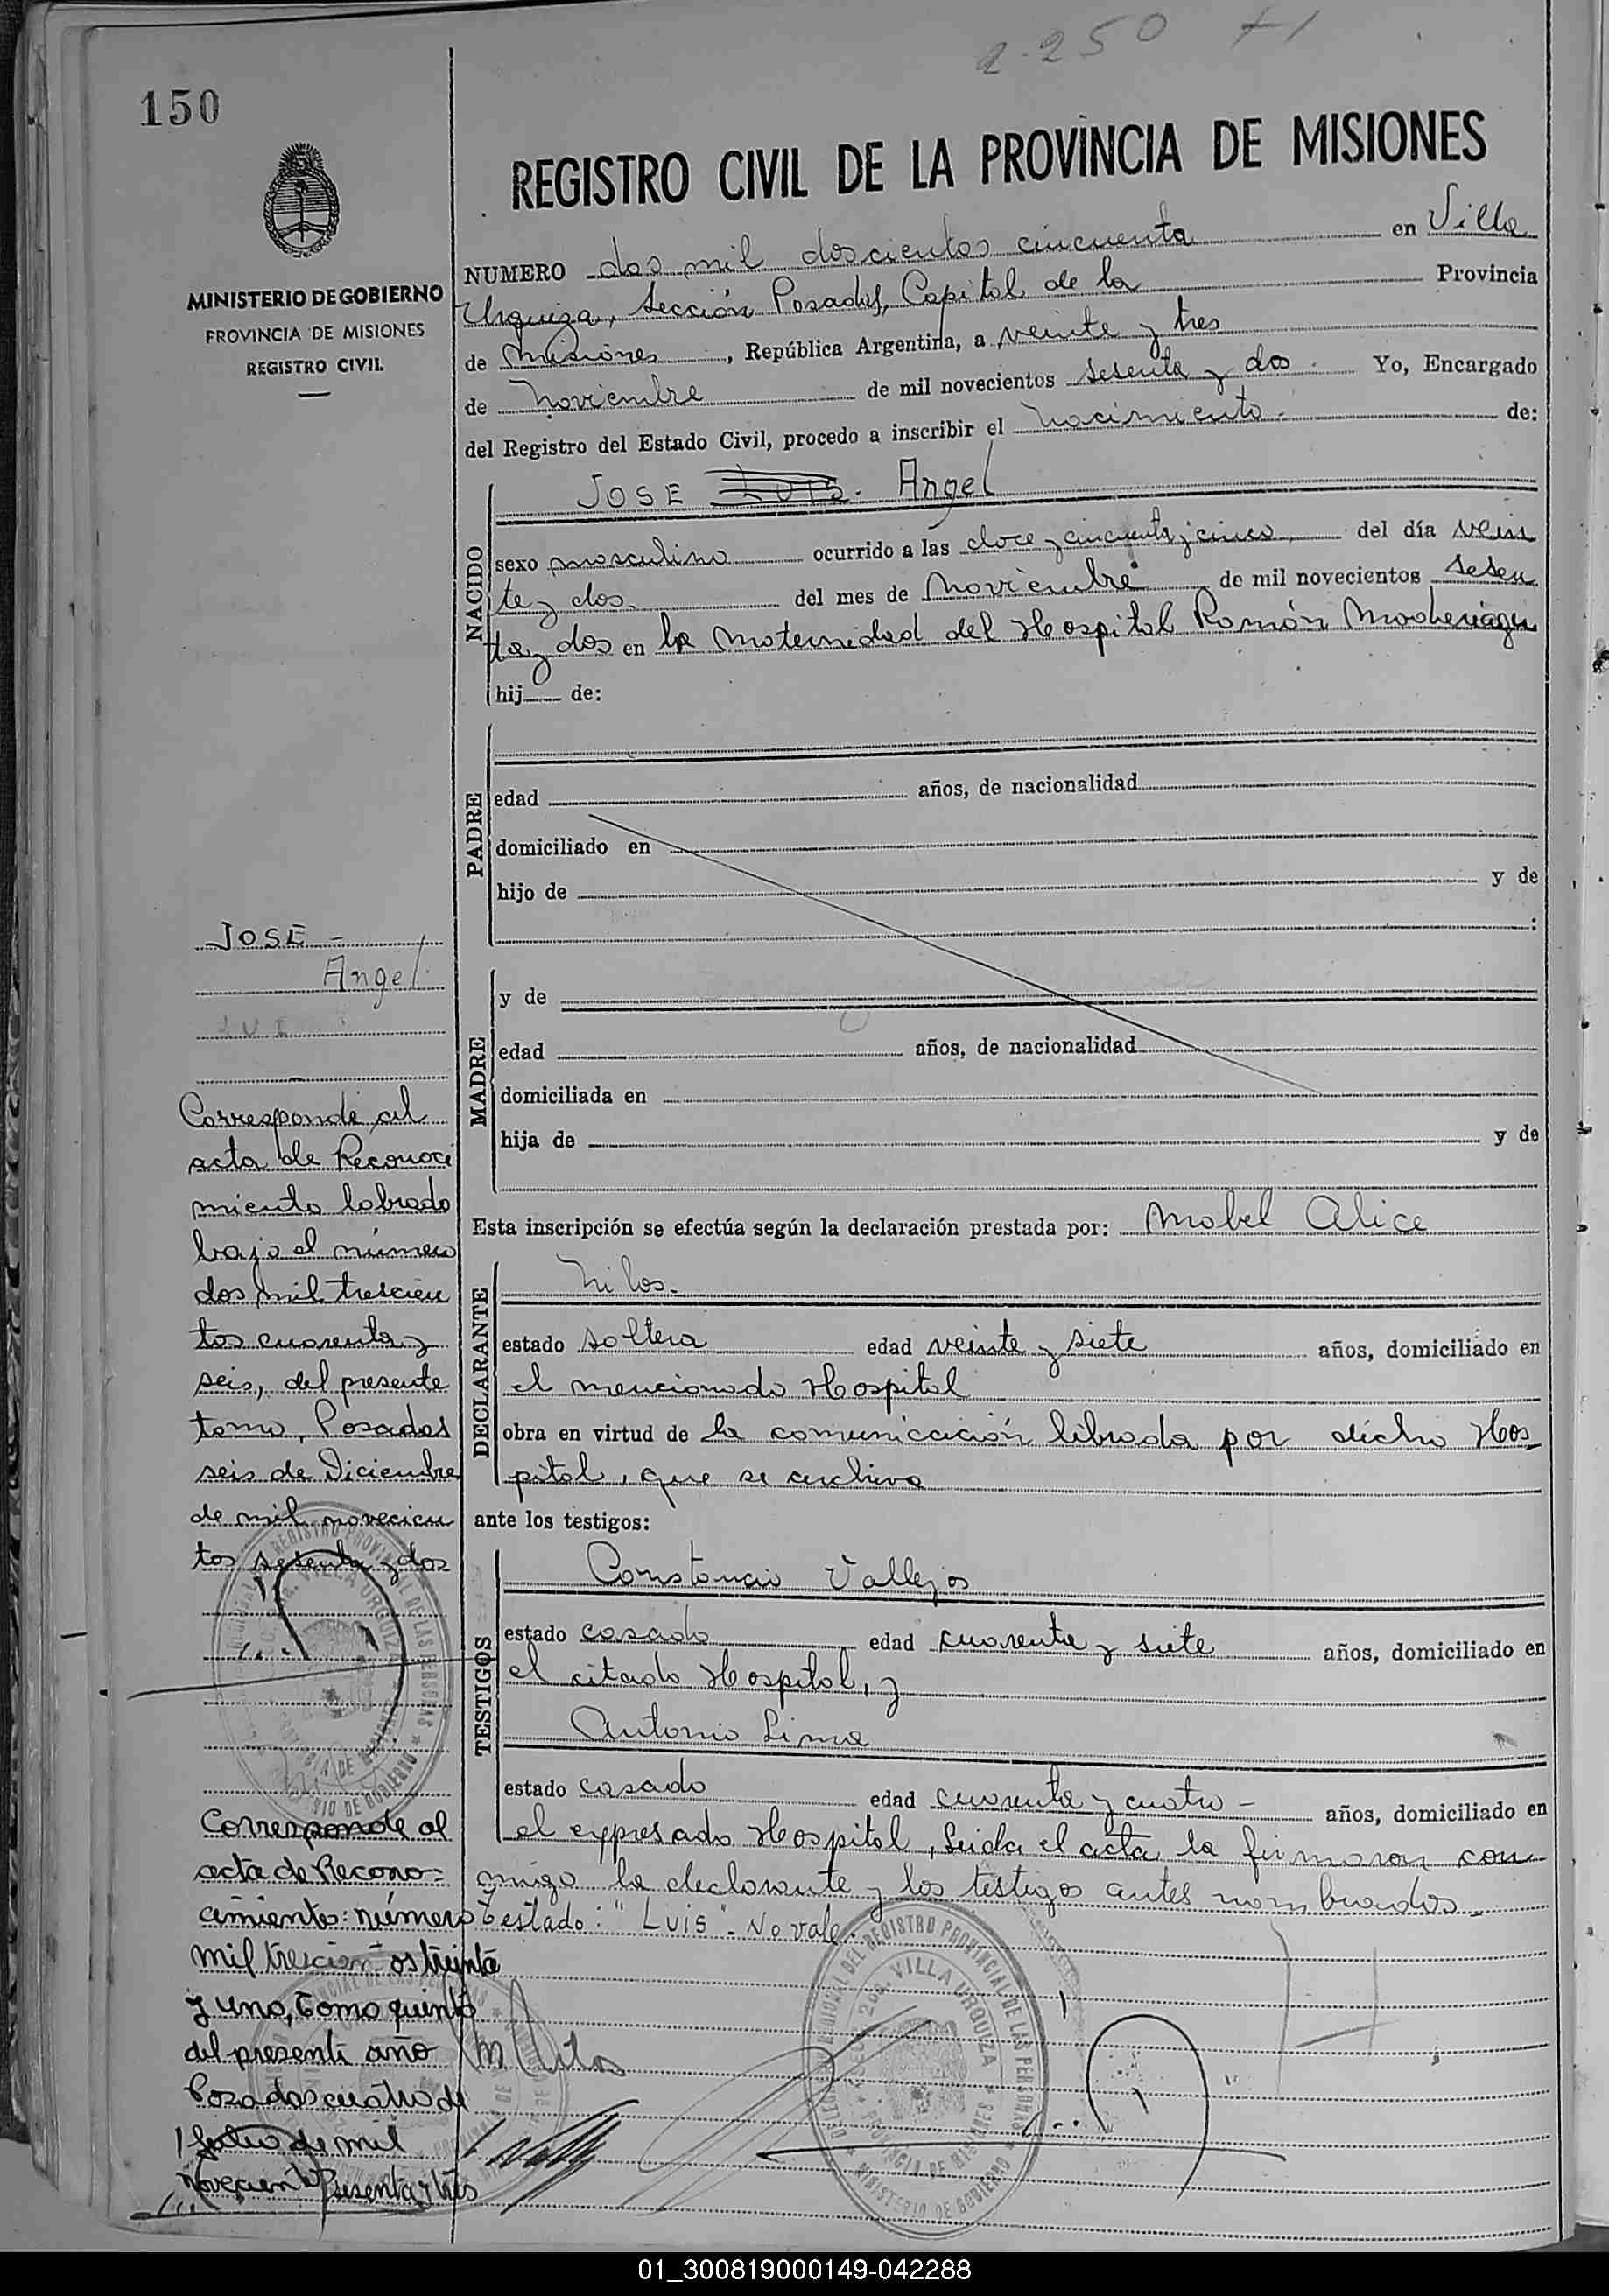 2.250
150
REGISTRO CIVIL DE LA PROVINCIA DE MISIONES
MINISTERIO DE GOBIERNO
PROVINCIA DE MISIONES
REGISTRO CIVIL
NUMERO dos mil doscientos cincuenta en Villa
Urquiza, Sección Posadas, Capital de la Provincia
de Misiones, República Argentina, a veinte y tres
de Noviembre de mil novecientos sesenta y dos. Yo, Encargado
del Registro del Estado Civil, procedo a inscribir el nacimiento. de:
NACIDO
JOSE LUIS. Angel
sexo masculino ocurrido a las doce y cincuenta y cinco del día vein
te y dos. del mes de Noviembre de mil novecientos sesen
ta y dos en la Maternidad del Hospital Ramón Madariaga
hij de:
PADRE
edad años, de nacionalidad
domiciliado en
hijo de y de
:
MADRE
y de
edad años, de nacionalidad
domiciliada en
hija de y de
Esta inscripción se efectúa según la declaración prestada por: Mabel Alice
DECLARANTE
estado soltera edad veinte y siete años, domiciliado en
el mencionado Hospital
obra en virtud de la comunicación librada por dicho Hos
pital, que se archiva
ante los testigos:
TESTIGOS
Constancio Vallejos
estado casado edad cuarenta y siete años, domiciliado en
el citado Hospital, y
Antonio Lima
estado casado edad cuarenta y cuatro - años, domiciliado en
el expresado Hospital, Leida el acta la firmaron con
migo la declarante y los testigos antes nombrados
Testado: "Luis". No vale.
JOSE -
Angel.
LUI
Corresponde al
acta de Reconoci
miento labrado
bajo el número
dos mil trescien
tos cuarenta y
seis, del presente
tomo, Posadas
seis de Diciembre
de mil novecien
tos sesenta y dos
Corresponde al
acta de Recono=
cimiento: número
mil trescientos treinta
y uno, tomo quinto
del presente año
Posadas cuatro de
de mil
novecientos sesenta y tres
REGISTRO PROVINCIAL DE LAS PERSONAS
VILLA URQUIZA
PROVINCIA DE MISIONES
MINISTERIO DE GOBIERNO
01_300819000149-042288